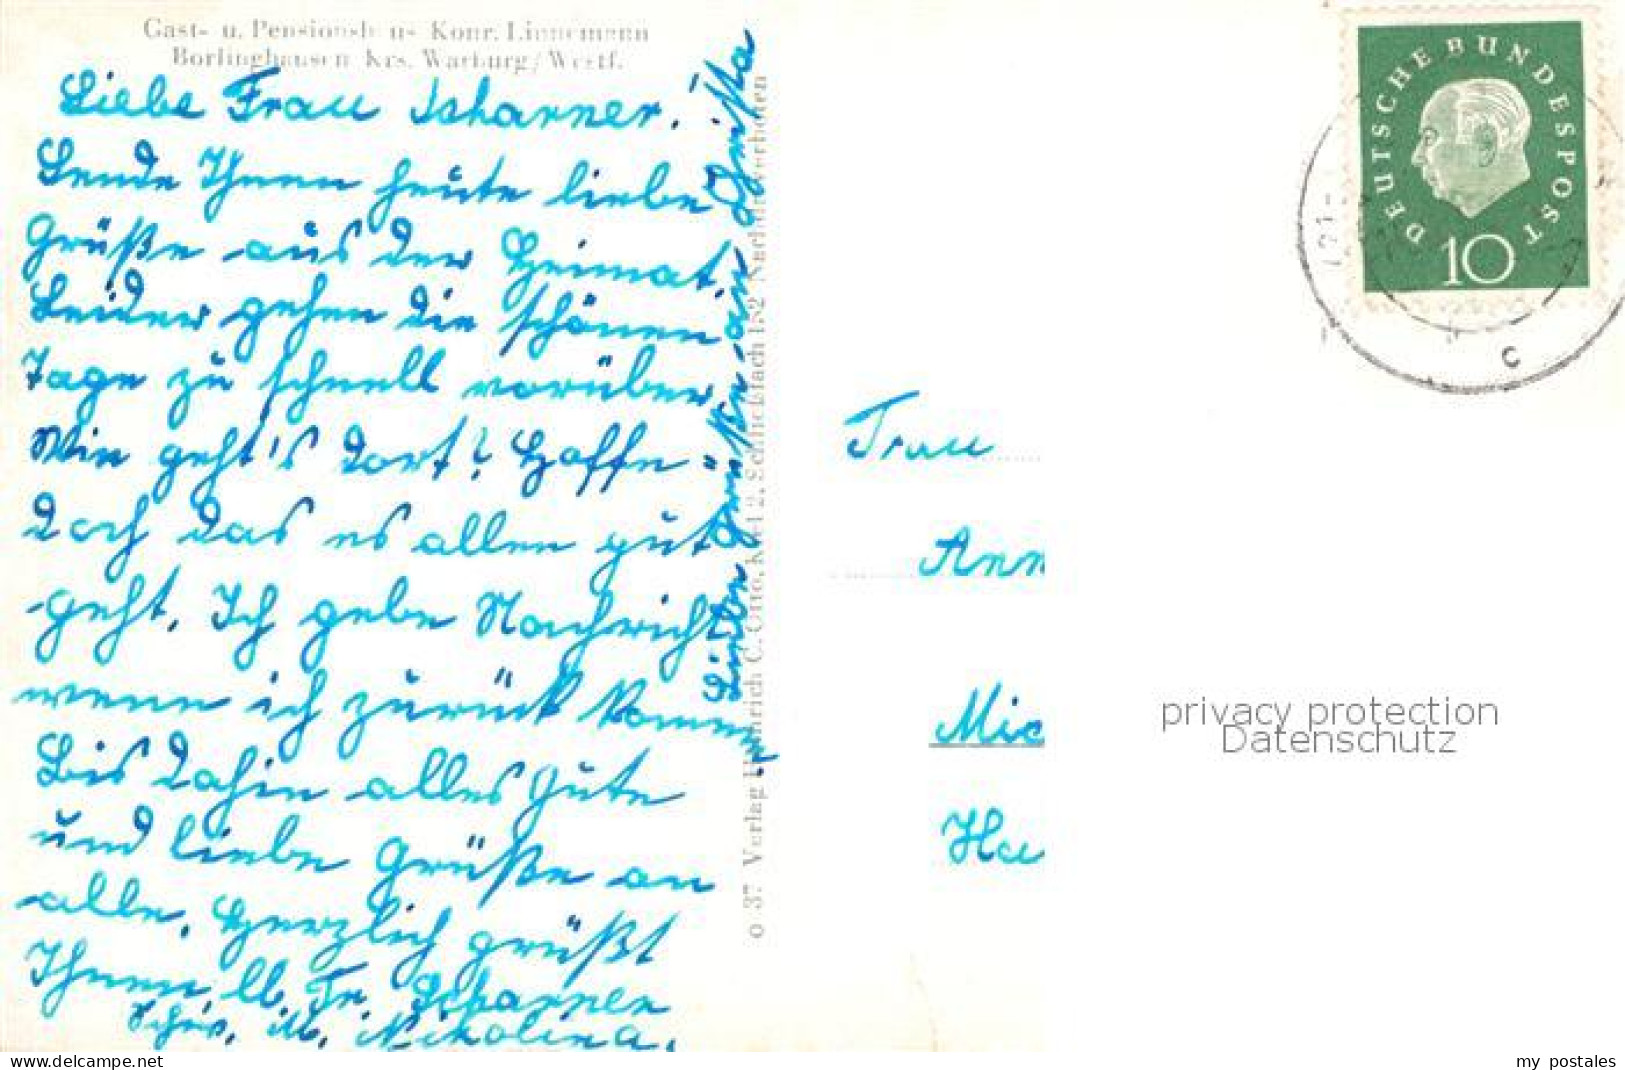 Gast- u. Pensionshaus Konr. Linnemann
Borlinghausen Krs. Warburg/Westf.
Liebe Frau Scharner!
Sende Ihnen heute liebe
Grüße aus der Heimat.
Leider gehen die schönen
Tage zu schnell vorüber.
Wie geht's dort? Hoffe =
doch das es allen gut
geht. Ich gebe Nachricht
wenn ich zurück komme.
Bis dahin alles Gute
und liebe Grüße an
alle. Herzlich grüßt
Ihnen, lb. Fr. Scharner
Schw. M. Nikolina.
Liebe Grüße an Christa
o 37 Verlag Heinrich C. Otto, Kiel 2, Schließfach 152 Nachdr. verboten
DEUTSCHE BUNDESPOST
10
c
Frau
Ann
Mic
Ha
privacy protection
Datenschutz
www.delcampe.net
my_postales